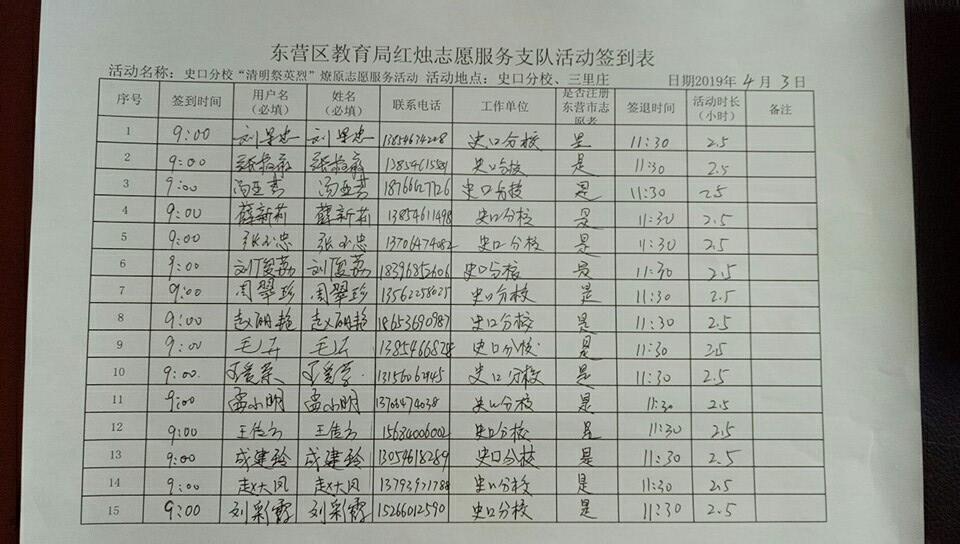 东营区教育局红烛志愿服务支队活动签到表
活动名称：史口分校“清明祭英烈”燎原志愿服务活动 活动地点：史口分校、三里庄 日期2019年4月3日
序号 签到时间 用户名（必填） 姓名（必填） 联系电话 工作单位 是否注册东营市志愿者 签退时间 活动时长（小时） 备注
1 9:00 史口分校 是 11:30 2.5
2 9:00 史口分校 是 11:30 2.5
3 9:00 史口分校 是 11:30 2.5
4 9:00 薛新莉 薛新莉 13854611498 史口分校 是 11:30 2.5
5 9:00 13706474082 史口分校 是 11:30 2.5
6 9:00 刘俊荔 刘俊荔 18396852606 史口分校 是 11:30 2.5
7 9:00 周翠珍 周翠珍 13562258025 史口分校 是 11:30 2.5
8 9:00 赵丽艳 赵丽艳 18653690987 史口分校 是 11:30 2.5
9 9:00 史口分校 是 11:30 2.5
10 9:00 13156062945 史口分校 是 11:30 2.5
11 9:00 孟小明 孟小明 史口分校 是 11:30 2.5
12 9:00 王佳方 王佳方 15684006002 史口分校 是 11:30 2.5
13 9:00 成建玲 成建玲 13054618289 史口分校 是 11:30 2.5
14 9:00 赵大凤 赵大凤 13793921788 史口分校 是 11:30 2.5
15 9:00 刘彩霞 刘彩霞 15266012590 史口分校 是 11:30 2.5